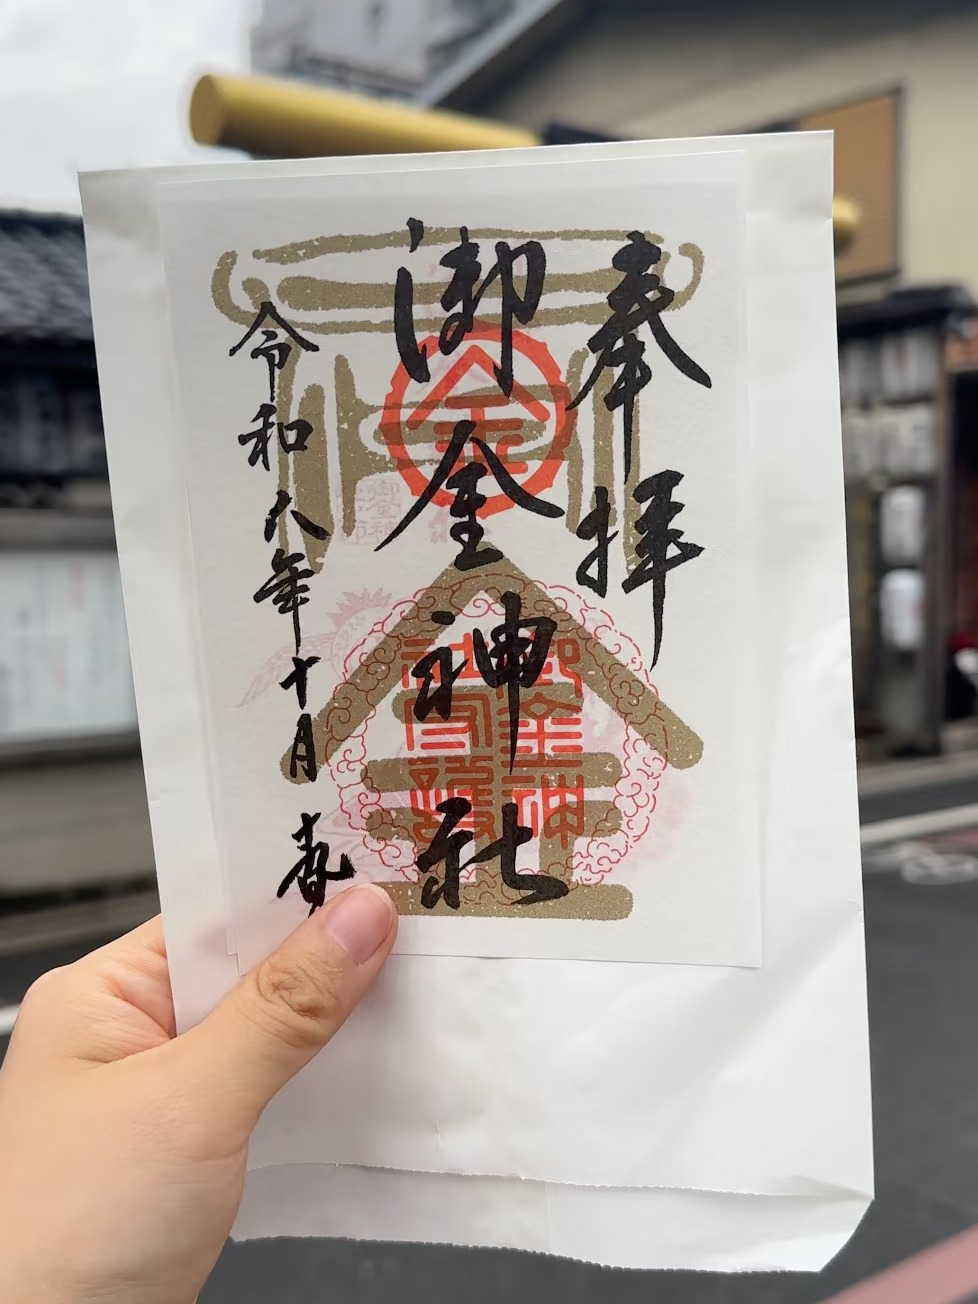 奉拝
御金神社
令和六年十月
金
御金神
社守護